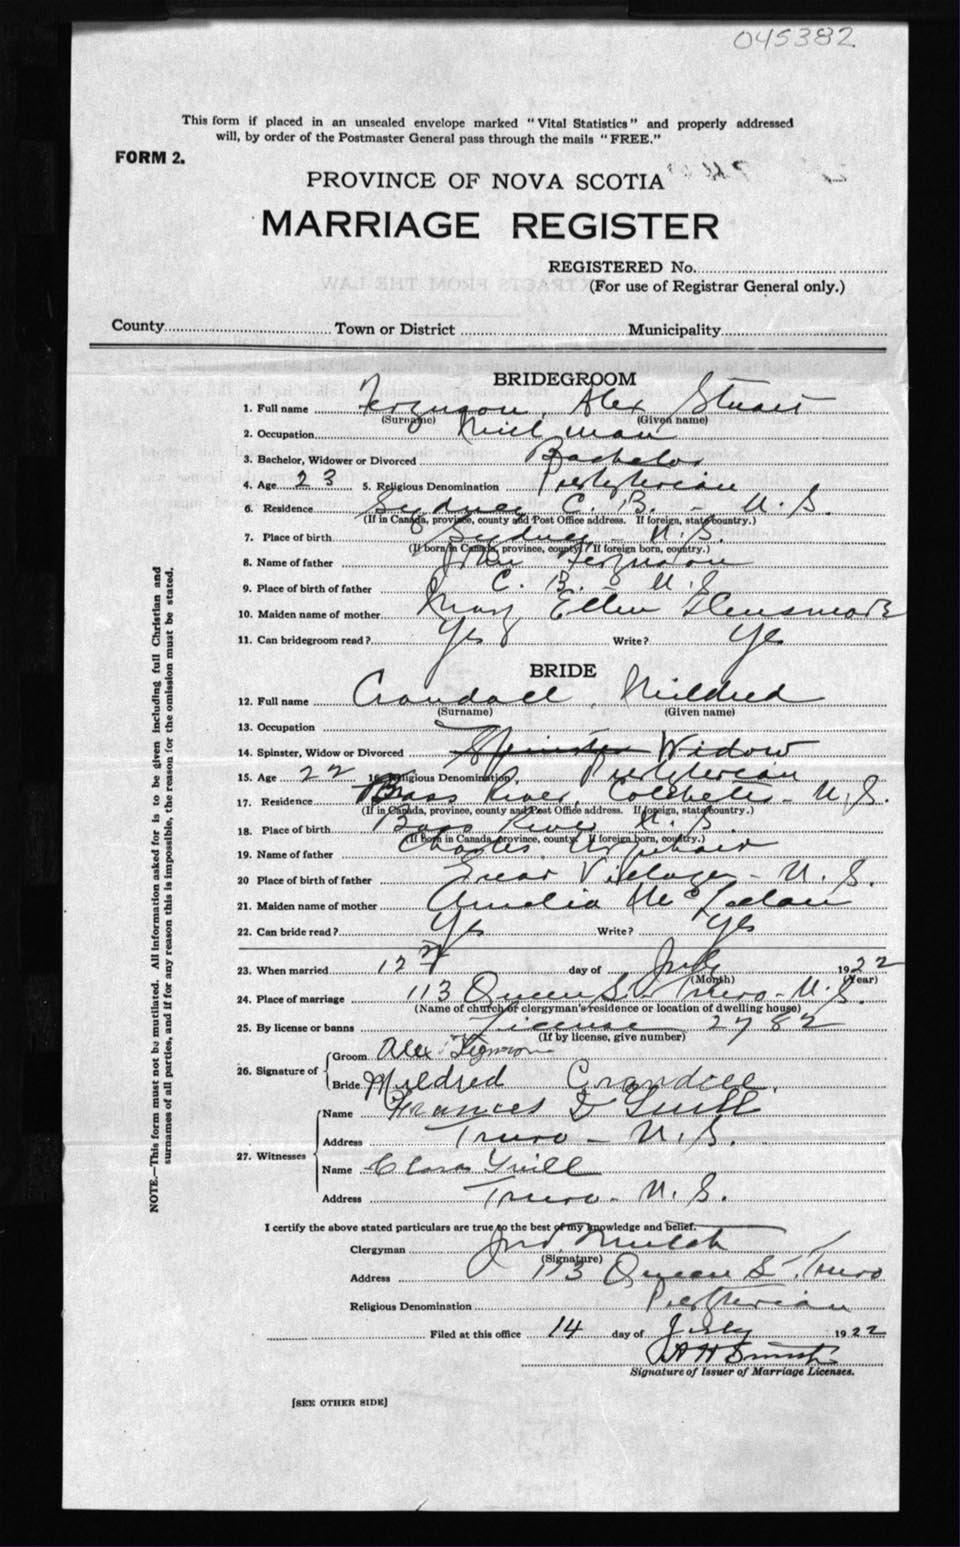 045382
This form if placed in an unsealed envelope marked "Vital Statistics" and properly addressed
will, by order of the Postmaster General pass through the mails "FREE."
FORM 2.
PROVINCE OF NOVA SCOTIA
MARRIAGE REGISTER
REGISTERED No.
(For use of Registrar General only.)
County Town or District Municipality
BRIDEGROOM
1. Full name Ferguson, Alex Stuart
(Surname) (Given name)
2. Occupation man
3. Bachelor, Widower or Divorced Bachelor
4. Age 23 5. Religious Denomination Presbyterian
6. Residence Sydney C. B. - N. S.
(If in Canada, province, county and Post Office address. If foreign, state country.)
7. Place of birth Sydney - N. S.
(If born in Canada, province, county. If foreign born, country.)
8. Name of father John Ferguson
9. Place of birth of father C. B. N. S.
10. Maiden name of mother Mary Ellen
11. Can bridegroom read? Yes Write? Yes
BRIDE
12. Full name Crandall, Mildred
(Surname) (Given name)
13. Occupation
14. Spinster, Widow or Divorced Spinster Widow
15. Age 22 16. Religious Denomination Presbyterian
17. Residence Bass River, Colchester - N. S.
(If in Canada, province, county and Post Office address. If foreign, state country.)
18. Place of birth Bass River N. S.
(If born in Canada, province, county. If foreign born, country.)
19. Name of father Charles
20 Place of birth of father Village - N. S.
21. Maiden name of mother Amelia
22. Can bride read? Yes Write? Yes
23. When married 12 day of July 1922
(Month) (Year)
24. Place of marriage 113 Queen St Truro - N. S.
(Name of church or clergyman's residence or location of dwelling house)
25. By license or banns License 2782
(If by license, give number)
26. Signature of
Groom Alex Ferguson
Bride Mildred Crandall.
27. Witnesses
Name Frances D
Address Truro - N. S.
Name Clara Yuill
Address Truro - N. S.
I certify the above stated particulars are true to the best of my knowledge and belief.
Clergyman
(Signature)
Address 113 Queen St. Truro
Religious Denomination Presbyterian
Filed at this office 14 day of July 1922
Signature of Issuer of Marriage Licenses.
[SEE OTHER SIDE]
NOTE.—This form must not be mutilated. All information asked for is to be given including full Christian and
surnames of all parties, and if for any reason this is impossible, the reason for the omission must be stated.